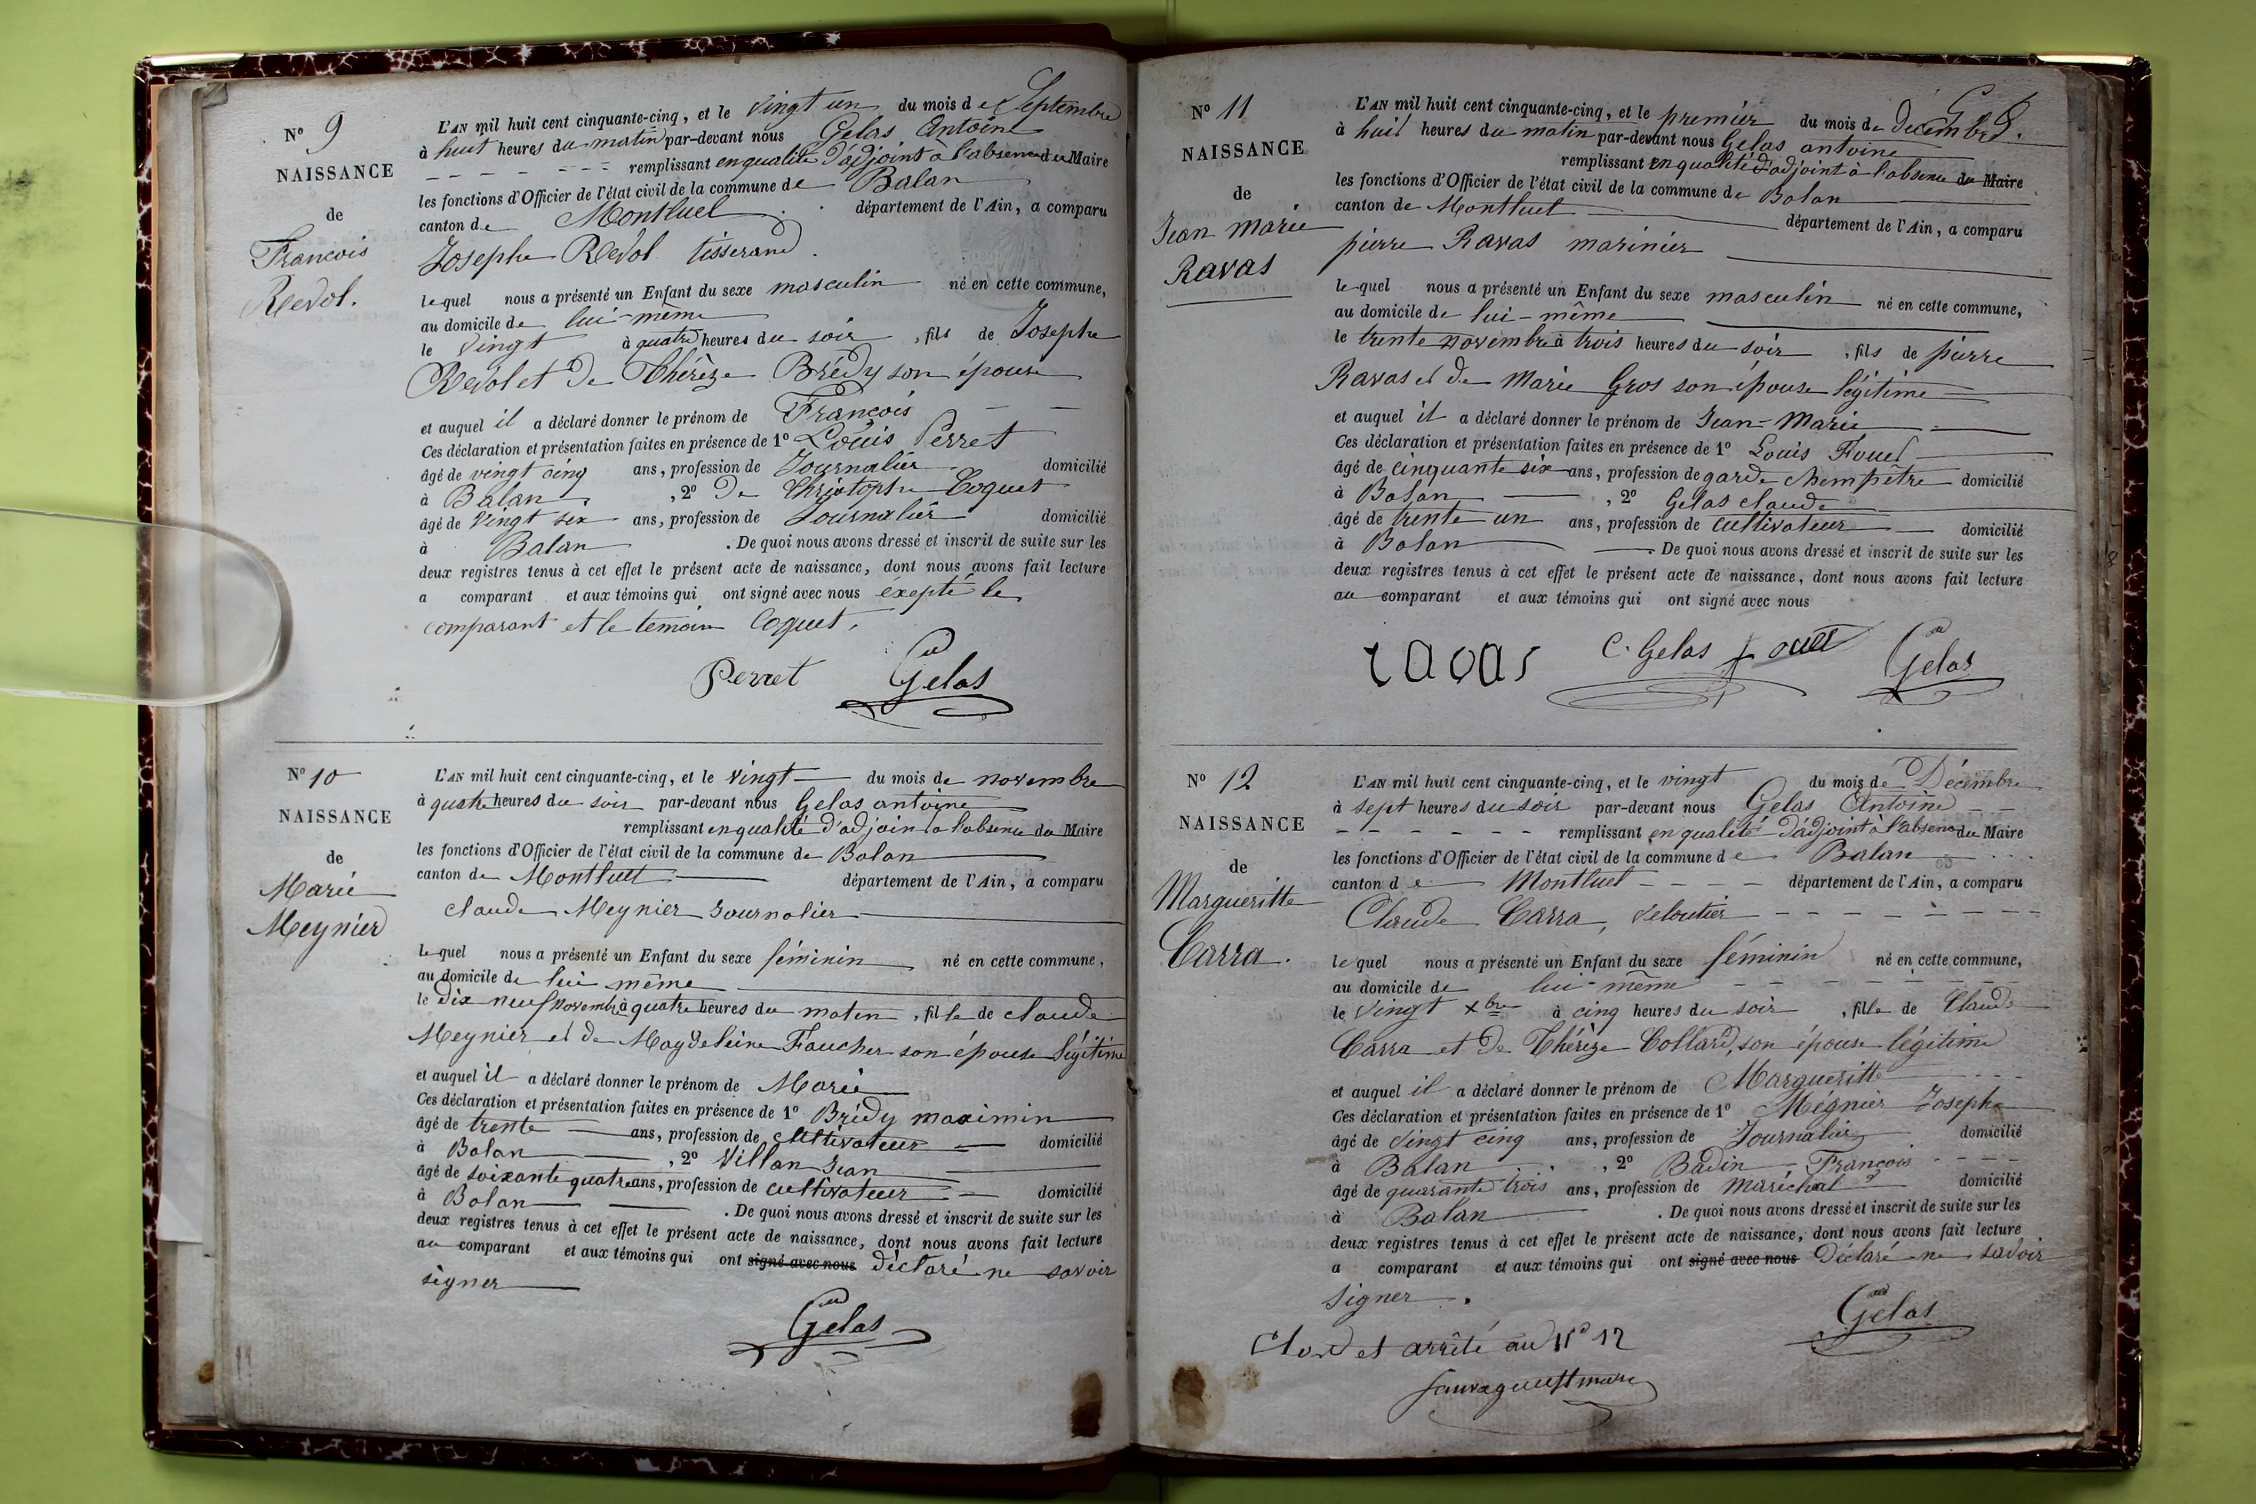 N° 9
NAISSANCE
de
François
Revol.
L'AN mil huit cent cinquante-cinq, et le vingt un du mois de Septembre
à huit heures du matin par-devant nous Gelas Antoine
remplissant en qualité d'adjoint à l'absence du Maire
les fonctions d'Officier de l'état civil de la commune de Balan
canton de Montluel département de l'Ain, a comparu
Josephe Revol tisserand.
lequel nous a présenté un Enfant du sexe masculin né en cette commune,
au domicile de lui-même
le vingt à quatre heures du soir, fils de Josephe
Revol et de Thérèze Brédy son épouse
et auquel il a déclaré donner le prénom de François
Ces déclaration et présentation faites en présence de 1° Louis Perret
âgé de vingt cinq ans, profession de Journalier domicilié
à Balan, 2° de Christophe Coquet
âgé de vingt six ans, profession de Journalier domicilié
à Balan. De quoi nous avons dressé et inscrit de suite sur les
deux registres tenus à cet effet le présent acte de naissance, dont nous avons fait lecture
a comparant et aux témoins qui ont signé avec nous éxepté le
comparant et le temoin Coquet.
Perret Gelas
N° 10
NAISSANCE
de
Marie
Meynier
L'AN mil huit cent cinquante-cinq, et le vingt du mois de novembre
à quatre heures du soir par-devant nous Gelas antoine
remplissant en qualité d'adjoint à l'absence du Maire
les fonctions d'Officier de l'état civil de la commune de Balan
canton de Montluel département de l'Ain, a comparu
claude Meynier journalier
lequel nous a présenté un Enfant du sexe féminin né en cette commune,
au domicile de lui même
le dix neuf novembre à quatre heures du maten, fille de claude
Meynier et de Magdeleine Faucher son épouse légitime
et auquel il a déclaré donner le prénom de Marie
Ces déclaration et présentation faites en présence de 1° Brédy maximin
âgé de trente ans, profession de cultivateur domicilié
à Balan, 2° Villan Jean
âgé de soixante quatre ans, profession de cultivateur domicilié
à Balan. De quoi nous avons dressé et inscrit de suite sur les
deux registres tenus à cet effet le présent acte de naissance, dont nous avons fait lecture
au comparant et aux témoins qui ont signé avec nous déclaré ne savoir
signer
Gelas
N° 11
NAISSANCE
de
Jean marie
Ravas
L'AN mil huit cent cinquante-cinq, et le premier du mois de décembre
à huit heures du matin par-devant nous Gelas antoine
remplissant en qualité d'adjoint à l'absence du Maire
les fonctions d'Officier de l'état civil de la commune de Balan
canton de Montluel département de l'Ain, a comparu
pierre Ravas marinier
lequel nous a présenté un Enfant du sexe masculin né en cette commune,
au domicile de lui-même
le trente novembre à trois heures du soir, fils de pierre
Ravas et de Marie Gros son épouse légitime
et auquel il a déclaré donner le prénom de Jean-Marie
Ces déclaration et présentation faites en présence de 1° Louis Fouet
âgé de cinquante six ans, profession de garde champêtre domicilié
à Balan, 2° Gelas claude
âgé de trente un ans, profession de cultivateur domicilié
à Balan. De quoi nous avons dressé et inscrit de suite sur les
deux registres tenus à cet effet le présent acte de naissance, dont nous avons fait lecture
au comparant et aux témoins qui ont signé avec nous
ravas C. Gelas fouet Gelas
N° 12
NAISSANCE
de
Margueritte
Carra.
L'AN mil huit cent cinquante-cinq, et le vingt du mois de Décembre
à sept heures du soir par-devant nous Gelas Antoine
remplissant en qualité d'adjoint à l'absence du Maire
les fonctions d'Officier de l'état civil de la commune de Balan
canton de Montluel département de l'Ain, a comparu
Claude Carra, veloutier
lequel nous a présenté un Enfant du sexe féminin né en cette commune,
au domicile de lui-même
le vingt xbre à cinq heures du soir, fille de Claude
Carra et de Thérèze Collard, son épouse légitime
et auquel il a déclaré donner le prénom de Margueritte
Ces déclaration et présentation faites en présence de 1° Mégnier Josephe
âgé de vingt cinq ans, profession de Journalier domicilié
à Balan, 2° Badin François
âgé de quarante trois ans, profession de maréchal domicilié
à Balan. De quoi nous avons dressé et inscrit de suite sur les
deux registres tenus à cet effet le présent acte de naissance, dont nous avons fait lecture
a comparant et aux témoins qui ont signé avec nous Déclaré ne savoir
signer.
Gelas
Clos et arrêté au N° 12